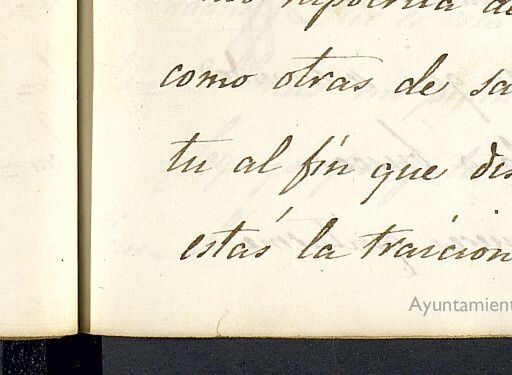 hipocrita de
como otras de sa
tu al fin que dis
estás la traicion
Ayuntamient